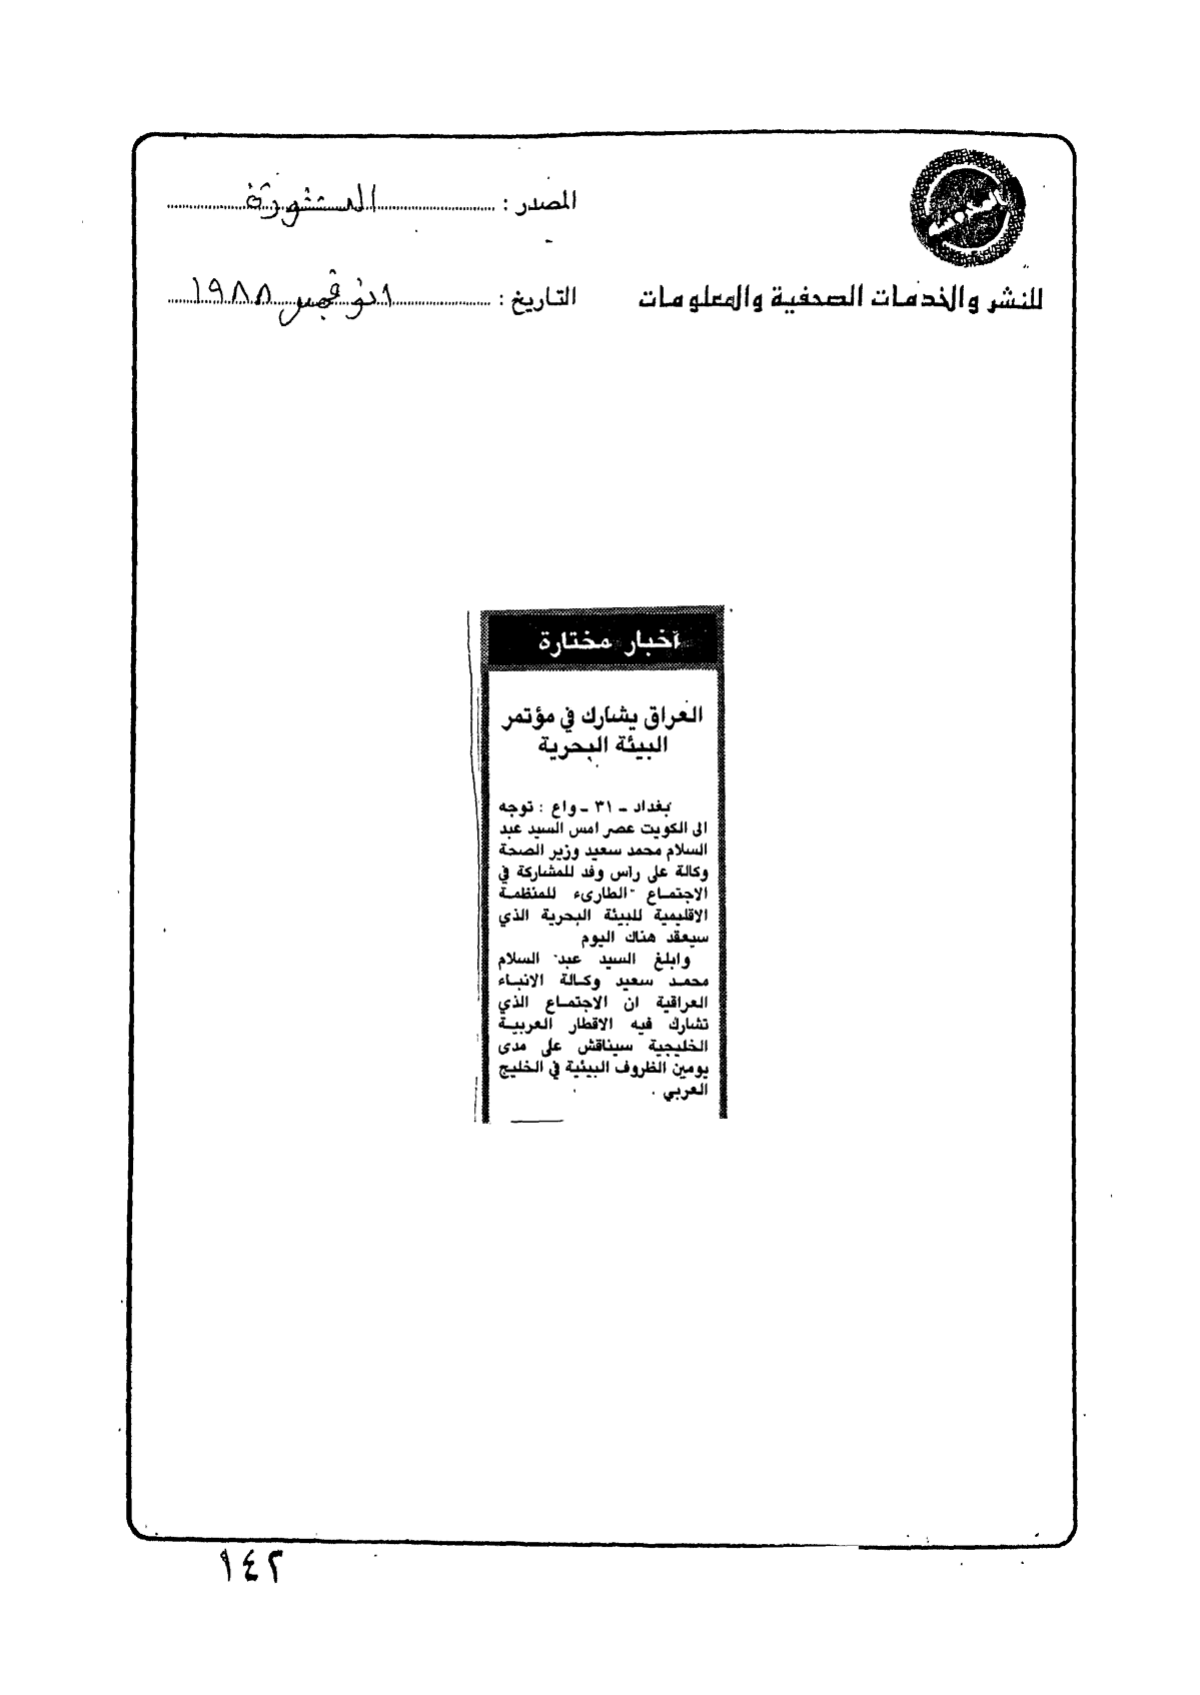 المصدر : الثورة
للنشر والخدمات الصحفية والمعلومات
التاريخ : ١ نوفمبر ١٩٨٨
أخبار مختارة
العراق يشارك في مؤتمر
البيئة البحرية
بغداد - ٣١ - واع : توجه
الى الكويت عصر امس السيد عبد
السلام محمد سعيد وزير الصحة
وكالة على رأس وفد للمشاركة في
الاجتماع الطارىء للمنظمة
الاقليمية للبيئة البحرية الذي
سيعقد هناك اليوم
وابلغ السيد عبد السلام
محمد سعيد وكالة الانباء
العراقية ان الاجتماع الذي
تشارك فيه الاقطار العربية
الخليجية سيناقش على مدى
يومين الظروف البيئية في الخليج
العربي .
١٤٢